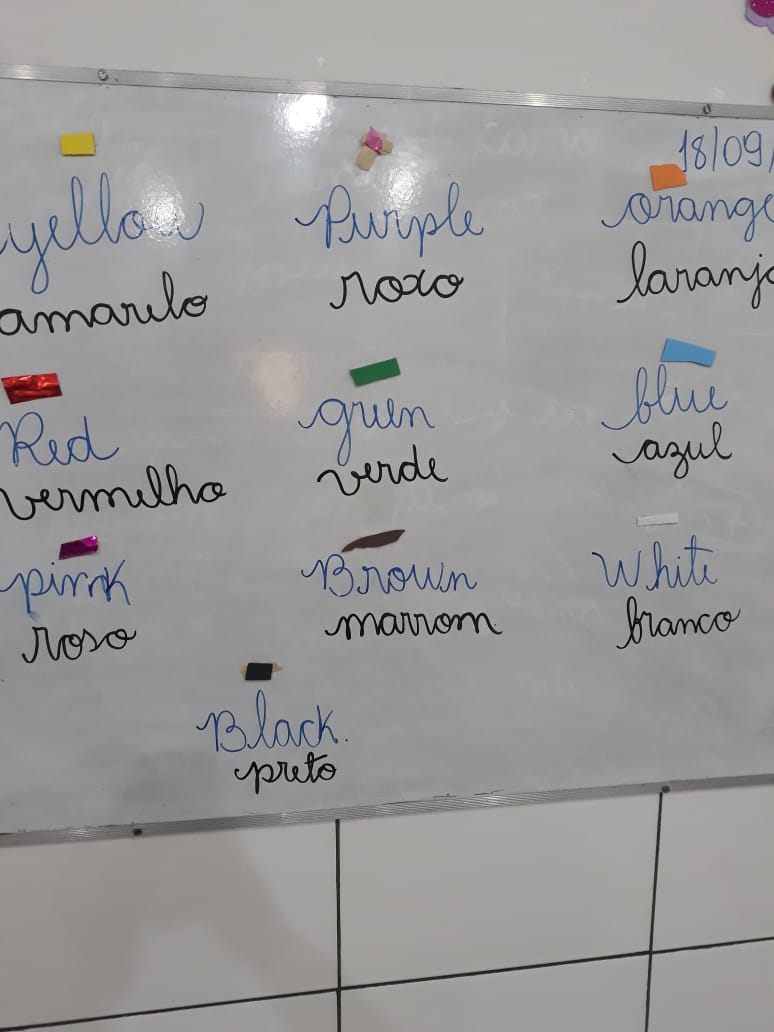 18/09/
yellow Purple orange
amarelo roxo laranja
Red green blue
vermelho verde azul
pink Brown White
rosa marrom branco
Black.
preto